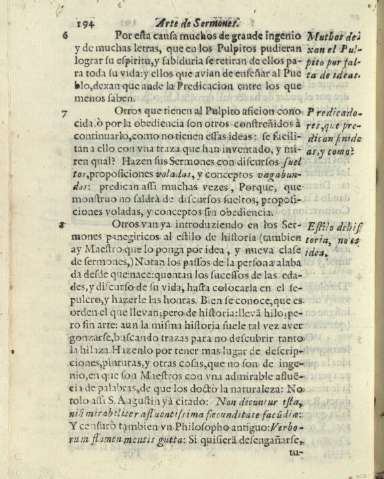 194 Arte de Sermones.
6 Por esta causa muchos de grande ingenio
y de muchas letras, que en los Pulpitos pudieran
lograr su espiritu, y sabiduria se retiran de ellos pa-
ra toda su vida: y ellos que avian de enseñar al Pue
blo, dexan que ande la Predicacion entre los que
menos saben.
Muchos de-
xan el Pul-
pito por fal-
ta de ideas.
7 Otros que tienen al Pulpito aficion cono
cida, ò por la obediencia son otros constreñidos à
continuarlo, como no tienen essas ideas: se facili-
tan a ello con vna traza que han inventado, y mi-
ren qual? Hazen sus Sermones con discursos suel
tos, proposiciones voladas, y conceptos vagabun-
dos: predican assi muchas vezes, Porque, que
monstruo no saldrà de discursos sueltos, proposi-
ciones voladas, y conceptos sin obediencia.
Predicado-
res, que pre-
dican sin ide
as, y como?
8 Otros van ya introduziendo en los Ser-
mones panegiricos al estilo de historia (tambien
ay Maestro que lo ponga por idea, y nueva clase
de sermones,) Notan los passos de la persona alaba
da desde que nace: quentan los sucessos de las eda-
des, y discurso de su vida, hasta colocarla en el se-
pulcro, y hazerle las honras. Bien se conoce, que es
orden el que llevan; pero de historia: llevà hilo; pe-
ro sin arte: aun la misma historia suele tal vez aver
gonzarse, buscando trazas para no descubrir tanto
la hilaza. Hazenlo por tener mas lugar de descrip-
ciones, pinturas, y otras cosas, que no son de inge-
nio, en que son Maestros con vna admirable aflué-
cia de palabras, de que los doctò la naturaleza: No
tolo assi S. Augustin yà citado: Non dicuntur ista,
nisi mirabiliter afluentissima fæcunditate facūdiæ:
Y censurò tambien vn Philosopho antiguo: Verbo-
rum flumen mentis gutta: Si quisierà desengañarse,
tu-
Estilo de his
toria, no es
idea.